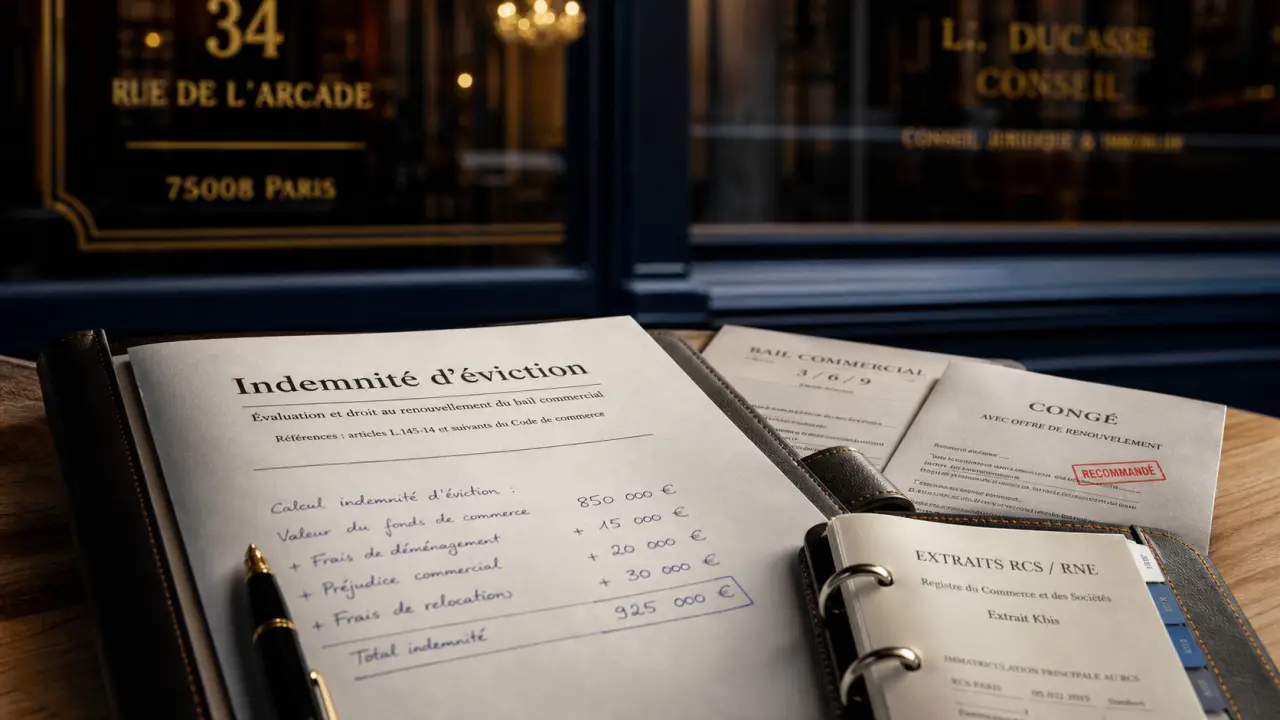 34
RUE DE L'ARCADE
75008 PARIS
L.. DUCASSE
CONSEIL
CONSEIL JURIDIQUE & IMMOBILIER
Indemnité d'éviction
Évaluation et droit au renouvellement du bail commercial
Références : articles L.145-14 et suivants du Code de commerce
Calcul indemnité d'éviction :
Valeur du fonds de commerce 850 000 €
+ Frais de déménagement + 15 000 €
+ Préjudice commercial + 20 000 €
+ Frais de relocation + 30 000 €
Total indemnité 925 000 €
BAIL COMMERCIAL
3 / 6 / 9
CONGÉ
AVEC OFFRE DE RENOUVELEMENT
RECOMMANDÉ
EXTRAITS RCS / RNE
Registre du Commerce et des Sociétés
Extrait Kbis
IMMATRICULATION PRINCIPALE AU RCS
RCS PARIS